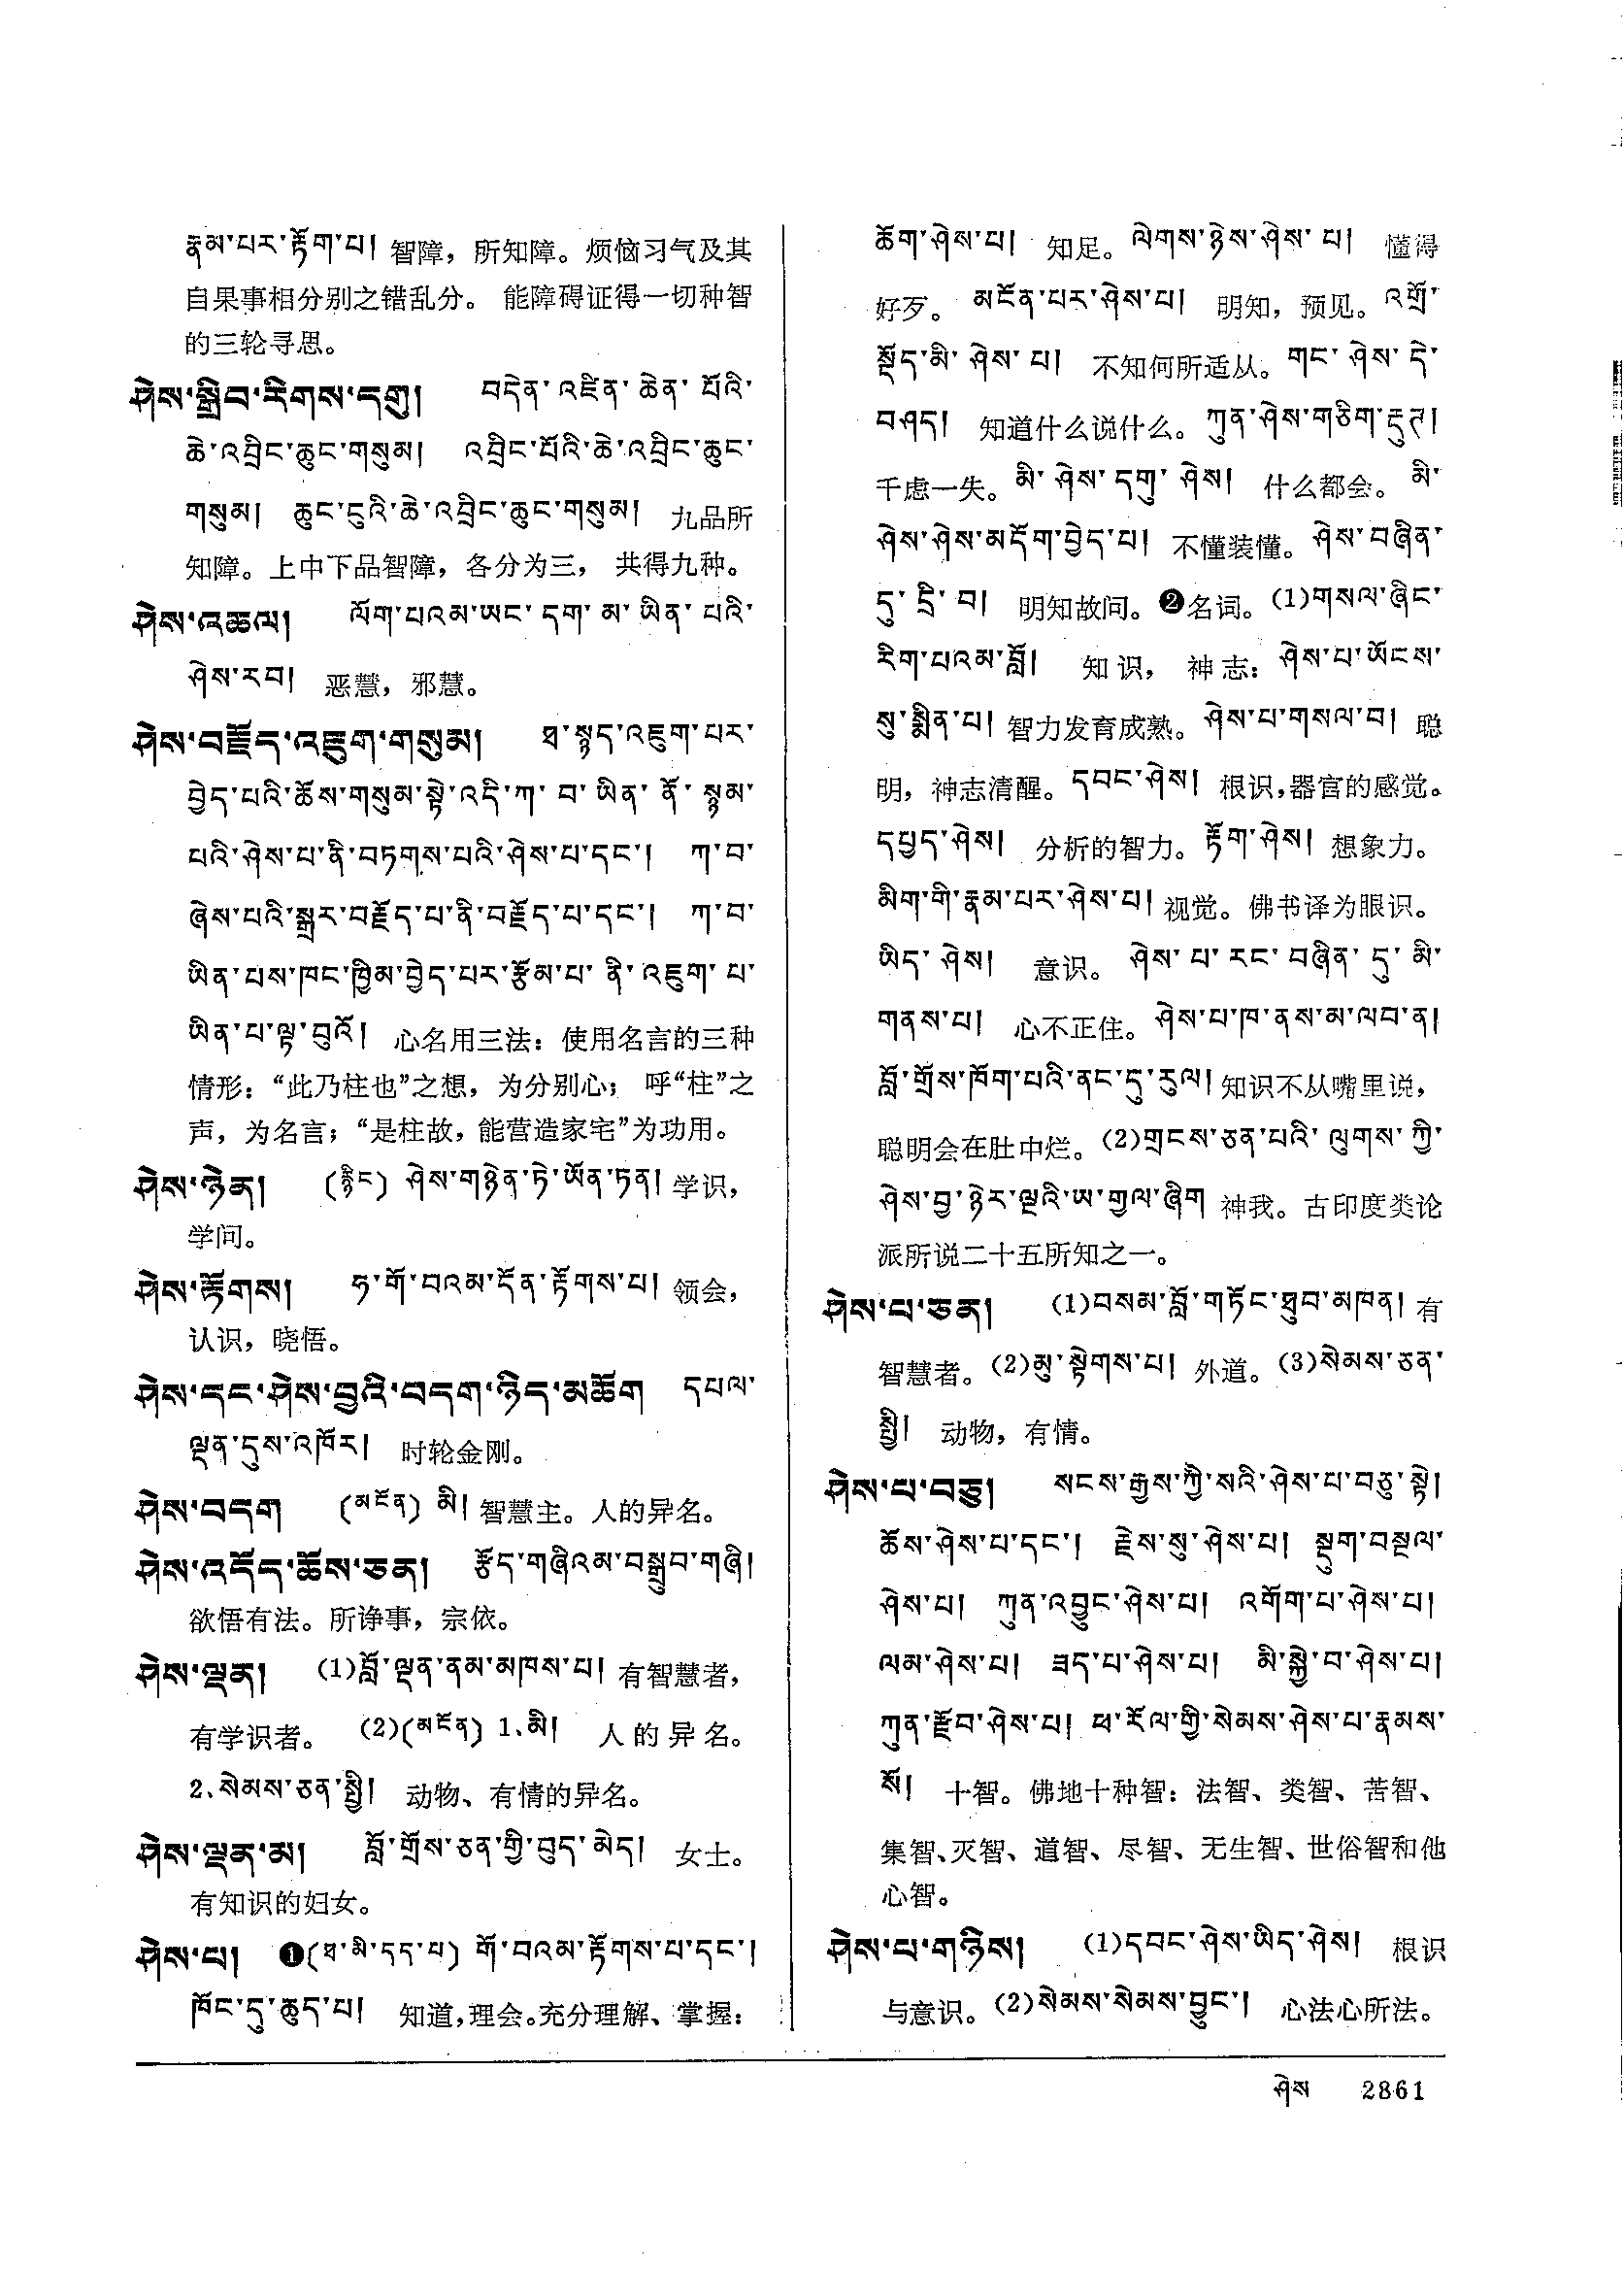 རྣམ་པར་རྟོག་པ། 智障，所知障。烦恼习气及其
自果事相分别之错乱分。 能障碍证得一切种智
的三轮寻思。
ཤེས་སྒྲིབ་རིགས་དགུ། བདེན་འཛིན་ཆེན་པོའི་
ཆེ་འབྲིང་ཆུང་གསུམ། འབྲིང་པོའི་ཆེ་འབྲིང་ཆུང་
གསུམ། ཆུང་ངུའི་ཆེ་འབྲིང་ཆུང་གསུམ། 九品所
知障。上中下品智障，各分为三， 共得九种。
ཤེས་འཆལ། ལོག་པའམ་ཡང་དག་མ་ཡིན་པའི་
ཤེས་རབ། 恶慧，邪慧。
ཤེས་བརྗོད་འཇུག་གསུམ། ཐ་སྙད་འཇུག་པར་
བྱེད་པའི་ཆོས་གསུམ་སྟེ་འདི་ཀ་བ་ཡིན་ནོ་སྙམ་
པའི་ཤེས་པ་ནི་བཏགས་པའི་ཤེས་པ་དང་། ཀ་བ་
ཞེས་པའི་སྒྲར་བརྗོད་པ་ནི་བརྗོད་པ་དང་། ཀ་བ་
ཡིན་པས་ཁང་ཁྱིམ་བྱེད་པར་རྩོམ་པ་ནི་འཇུག་པ་
ཡིན་པ་ལྟ་བུའོ། 心名用三法：使用名言的三种
情形：“此乃柱也”之想，为分别心； 呼“柱”之
声，为名言；“是柱故，能营造家宅”为功用。
ཤེས་ཉེན། (རྙིང) ཤེས་གཉེན་ཏེ་ཡོན་ཏན། 学识，
学问。
ཤེས་རྟོགས། ཧ་གོ་བའམ་དོན་རྟོགས་པ། 领会，
认识，晓悟。
ཤེས་དང་ཤེས་བྱའི་བདག་ཉིད་མཆོག དཔལ་
ལྡན་དུས་འཁོར། 时轮金刚。
ཤེས་བདག (མངོན) མི། 智慧主。人的异名。
ཤེས་འདོད་ཆོས་ཅན། རྩོད་གཞིའམ་བསྒྲུབ་གཞི།
欲悟有法。所诤事，宗依。
ཤེས་ལྡན། (1)བློ་ལྡན་ནམ་མཁས་པ། 有智慧者，
有学识者。 (2)(མངོན) 1.མི། 人的异名。
2.སེམས་ཅན་སྤྱི། 动物、有情的异名。
ཤེས་ལྡན་མ། བློ་གྲོས་ཅན་གྱི་བུད་མེད། 女士。
有知识的妇女。
ཤེས་པ། ❶(ཐ་མི་དད་པ) གོ་བའམ་རྟོགས་པ་དང་།
ཁོང་དུ་ཆུད་པ། 知道，理会。充分理解、掌握：
ཆོག་ཤེས་པ། 知足。ལེགས་ཉེས་ཤེས་པ། 懂得
好歹。 མངོན་པར་ཤེས་པ། 明知，预见。འགྲོ་
སྡོད་མི་ཤེས་པ། 不知何所适从。གང་ཤེས་དེ་
བཤད། 知道什么说什么。ཀུན་ཤེས་གཅིག་རྡུཊ།
千虑一失。མི་ཤེས་དགུ་ཤེས། 什么都会。 མི་
ཤེས་ཤེས་མདོག་བྱེད་པ། 不懂装懂。ཤེས་བཞིན་
དུ་དྲི་བ། 明知故问。❷名词。(1)གསལ་ཞིང་
རིག་པའམ་བློ། 知识， 神志：ཤེས་པ་ཡོངས་
སུ་སྨིན་པ། 智力发育成熟。ཤེས་པ་གསལ་བ། 聪
明，神志清醒。དབང་ཤེས། 根识，器官的感觉。
དཔྱད་ཤེས། 分析的智力。རྟོག་ཤེས། 想象力。
མིག་གི་རྣམ་པར་ཤེས་པ། 视觉。佛书译为眼识。
ཡིད་ཤེས། 意识。 ཤེས་པ་རང་བཞིན་དུ་མི་
གནས་པ། 心不正住。ཤེས་པ་ཁ་ནས་མ་ལབ་ན།
བློ་གྲོས་ཁོག་པའི་ནང་དུ་རུལ། 知识不从嘴里说，
聪明会在肚中烂。(2)གྲངས་ཅན་པའི་ལུགས་ཀྱི་
ཤེས་བྱ་ཉེར་ལྔའི་ཨ་གྱལ་ཞིག 神我。古印度类论
派所说二十五所知之一。
ཤེས་པ་ཅན། (1)བསམ་བློ་གཏོང་ཐུབ་མཁན། 有
智慧者。(2)མུ་སྟེགས་པ། 外道。(3)སེམས་ཅན་
སྤྱི། 动物，有情。
ཤེས་པ་བཅུ། སངས་རྒྱས་ཀྱི་སའི་ཤེས་པ་བཅུ་སྟེ།
ཆོས་ཤེས་པ་དང་། རྗེས་སུ་ཤེས་པ། སྡུག་བསྔལ་
ཤེས་པ། ཀུན་འབྱུང་ཤེས་པ། འགོག་པ་ཤེས་པ།
ལམ་ཤེས་པ། ཟད་པ་ཤེས་པ། མི་སྐྱེ་བ་ཤེས་པ།
ཀུན་རྫོབ་ཤེས་པ། ཕ་རོལ་གྱི་སེམས་ཤེས་པ་རྣམས་
སོ། 十智。佛地十种智：法智、类智、苦智、
集智、灭智、道智、尽智、无生智、世俗智和他
心智。
ཤེས་པ་གཉིས། (1)དབང་ཤེས་ཡིད་ཤེས། 根识
与意识。(2)སེམས་སེམས་བྱུང་། 心法心所法。
ཤེས 2861